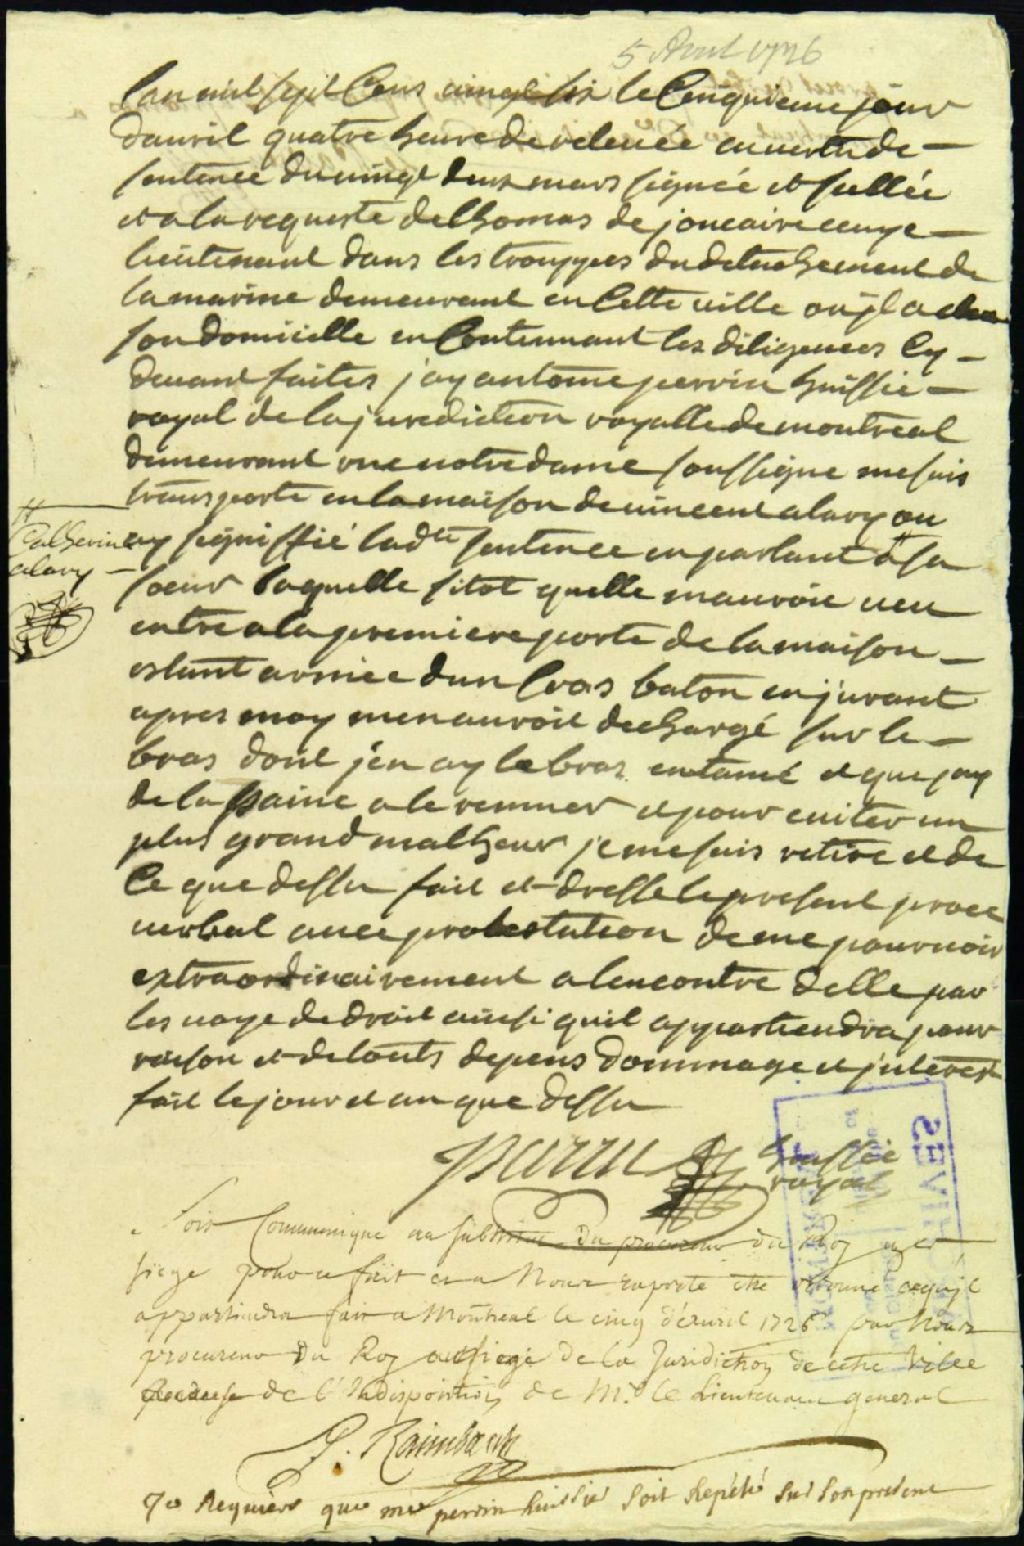 5 Avril 1726
Lan mil sept Cens vingt six le Cinquieme jour
davril quatre heure de relevée en vertu de
sentence du vingt deux mars signée et scellée
et a la requeste de thomas de joncaire ecuye
lieutenant dans les trouppes du detachement de
la marine demeurant en Cette ville ou jl a eleu
son domicille en Contennant les diligences Cy
devant faites jay antoine perrin huissie
royal de la jurediction royalle de montreal
demeurant rue notre dame soussigne me suis
transporte en la maison de vincent alary ou
ay signiffié ladte sentence en parlant a # sa
# Catherine
alary
soeur laquelle sitot quelle mauroie veu
entre a la premiere porte de la maison
estant armée dun Gros baton en jurant
apres moy men auroit dechargé sur le
bras dont jen ay le bras entamé et que jay
de la paine a le remuer et pour eviter un
plus grand malheur je me suis retire et de
Ce que dessu fait et dresse le present proce
verbal avec protestation de me pourvoir
extraordinairement a lencontre delle par
les voye de droit ainsi quil appartiendra pour
raison et de touts depens dommage et jnterest
fait le jour et an que dessu
perrin huissie
royal
Soit Communiqué au substitut du procureur du Roy
siege pour ce fait et a Nous raporté etre ordonné ce qu'jl
appartiendra fait a Montreal le cinq d'avril 1726 par Nous
procureur du Roy au siege de la Juridiction de cette Ville
de l'Indisposition de Mr. le Lieutenant general
P. Raimbault
Je Requiers que me perrin huissie soit Repeté sur son present